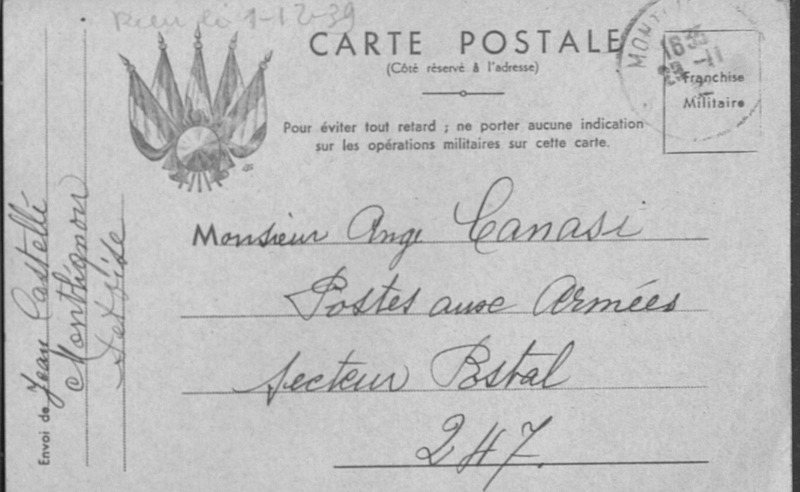 1-12-39
CARTE POSTALE
(Côté réservé à l'adresse)
MONT
16 35
29 -11
Franchise
Militaire
Pour éviter tout retard ; ne porter aucune indication
sur les opérations militaires sur cette carte.
Monsieur Ange Canasi
Postes aux Armées
Secteur Postal
247.
Envoi de Jean Castelli
Monthignon
S et Oise